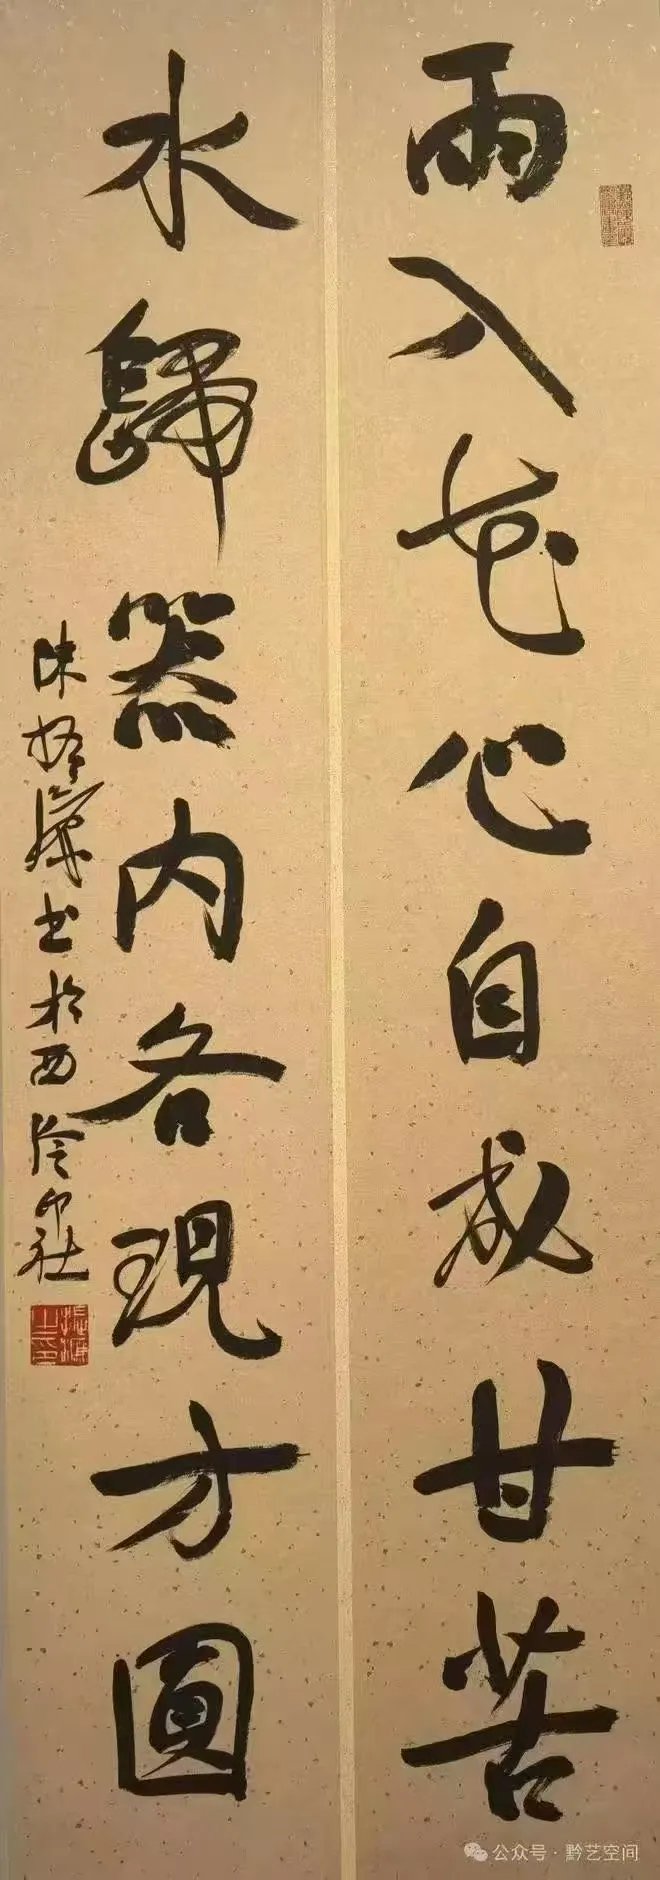 雨入花心自成甘苦
水歸器内各現方圓
陳振濂書於西泠印社
公众号·黔艺空间